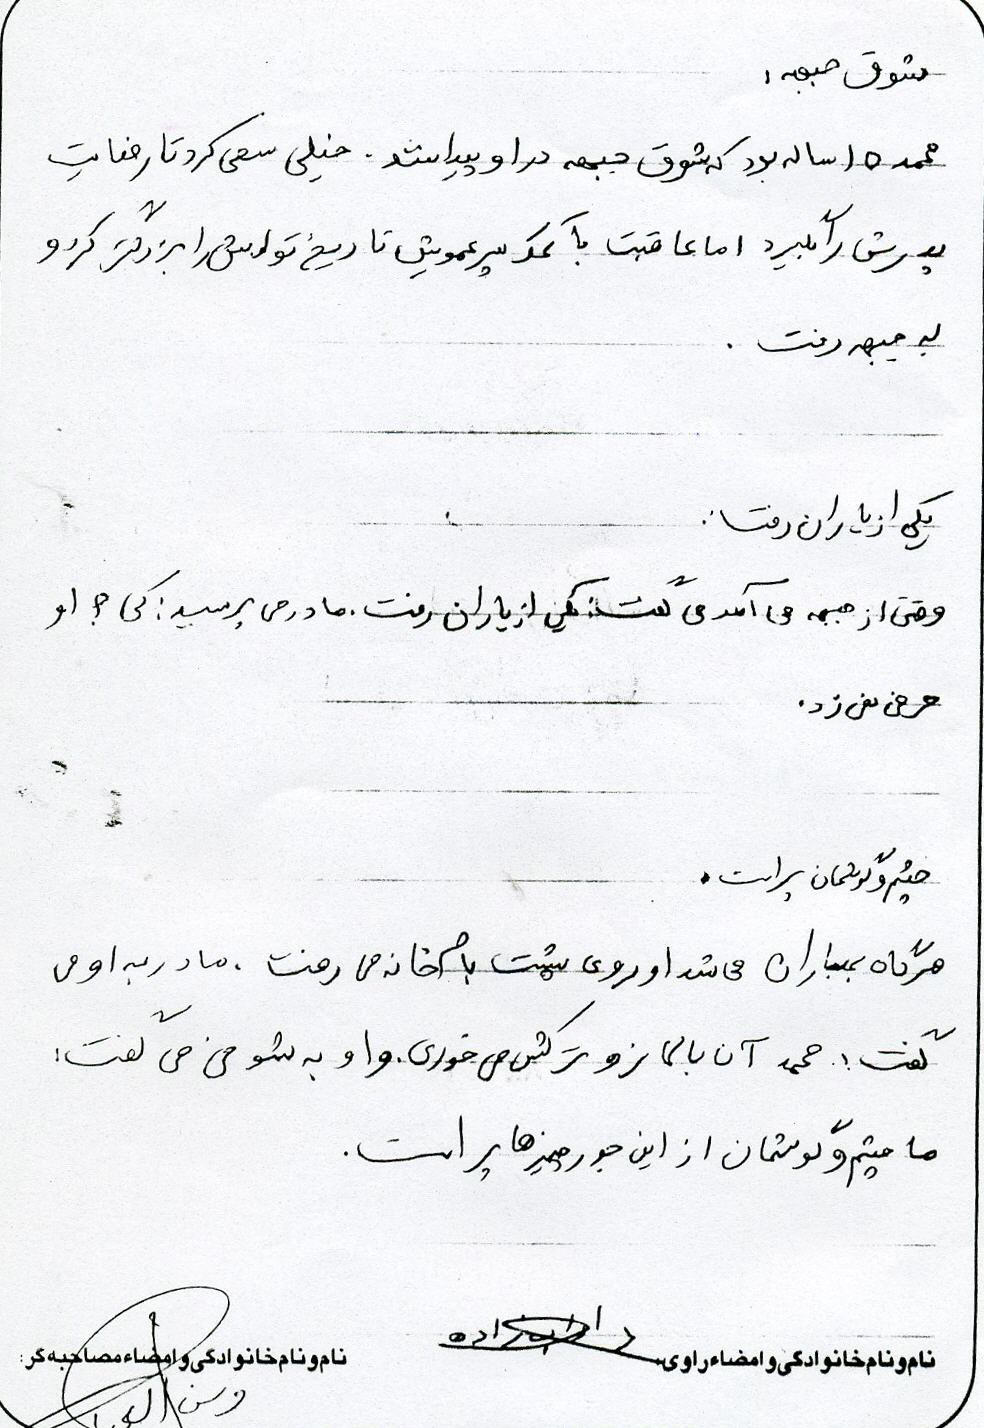 شوق جبهه :
محمد ۱۵ ساله بود که شوق جبهه در او پیدا شد . خیلی سعی کرد تا رضایت
پدرش را بگیرد اما عاقبت با کمک پسرعمویش تاریخ تولدش را بزرگتر کرد و
به جبهه رفت .
یکی از یاران رفت :
وقتی از جبهه می آمد می گفت : یکی از یاران رفت . مادر می پرسید : کی ؟ او
حرفی نمی زد .
چشم و گوشمان پر است .
هرگاه بمباران می شد او روی پشت بام خانه می رفت . مادر به او می
گفت : محمد آن بالا نرو ترکش می خوری . و او به شوخی می گفت :
ما چشم و گوشمان از این جور چیزها پر است .
نام و نام خانوادگی و امضاء راوی:
نام و نام خانوادگی و امضاء مصاحبه گر: